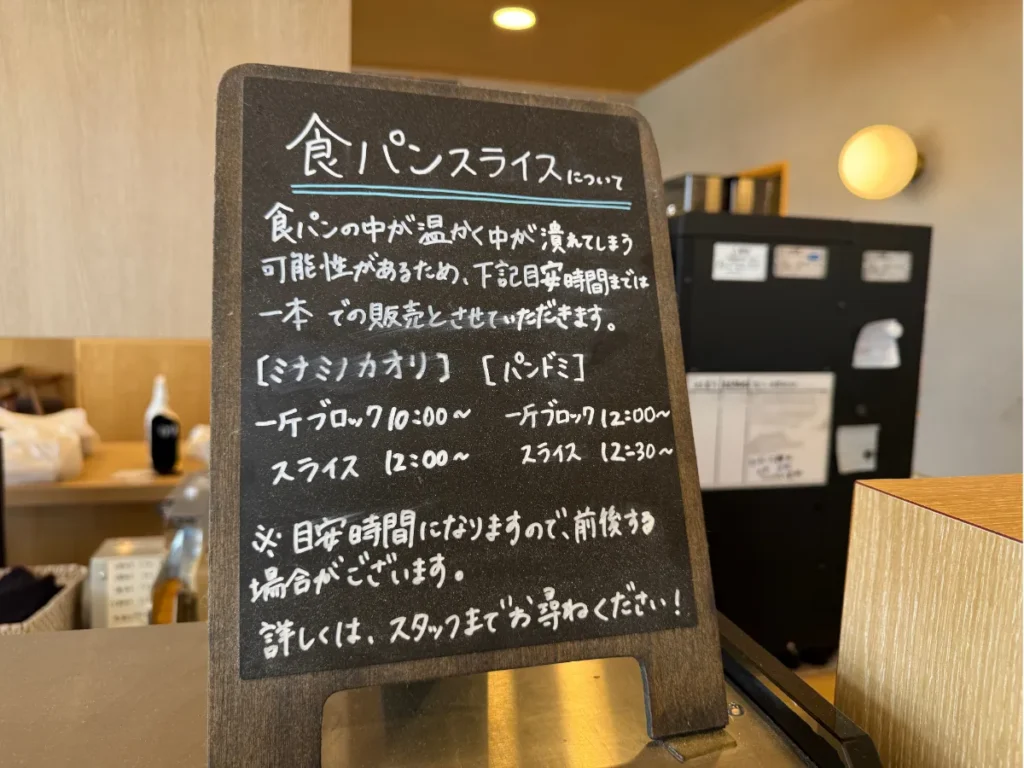 食パンスライスについて
食パンの中が温かく中が潰れてしまう
可能性があるため、下記目安時間までは
一本 での販売とさせていただきます。
[ミナミノカオリ] [パンドミ]
一斤ブロック10:00～ 一斤ブロック12:00～
スライス 12:00～ スライス 12:30～
※目安時間になりますので、前後する
場合がございます。
詳しくは、スタッフまでお尋ねください!